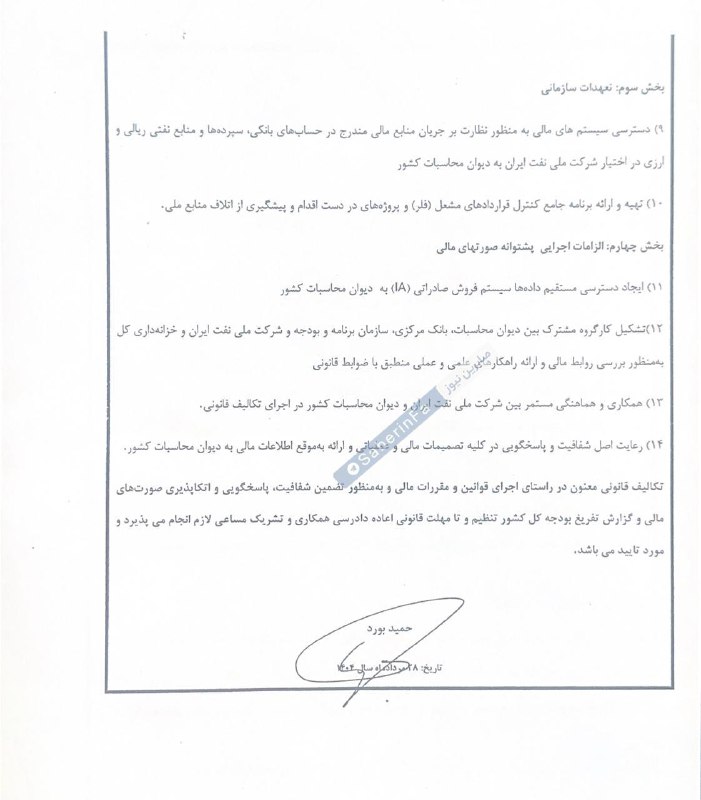 بخش سوم: تعهدات سازمانی
۹) دسترسی سیستم های مالی به منظور نظارت بر جریان منابع مالی مندرج در حساب‌های بانکی، سپرده‌ها و منابع نفتی ریالی و
ارزی در اختیار شرکت ملی نفت ایران به دیوان محاسبات کشور
۱۰) تهیه و ارائه برنامه جامع کنترل قراردادهای مشعل (فلر) و پروژه‌های در دست اقدام و پیشگیری از اتلاف منابع ملی.
بخش چهارم: الزامات اجرایی پشتوانه صورتهای مالی
۱۱) ایجاد دسترسی مستقیم داده‌ها سیستم فروش صادراتی (IA) به دیوان محاسبات کشور
۱۲)تشکیل کارگروه مشترک بین دیوان محاسبات، بانک مرکزی، سازمان برنامه و بودجه و شرکت ملی نفت ایران و خزانه‌داری کل
به‌منظور بررسی روابط مالی و ارائه راهکارهای علمی و عملی منطبق با ضوابط قانونی
۱۳) همکاری و هماهنگی مستمر بین شرکت ملی نفت ایران و دیوان محاسبات کشور در اجرای تکالیف قانونی.
۱۴) رعایت اصل شفافیت و پاسخگویی در کلیه تصمیمات مالی و عملیاتی و ارائه به‌موقع اطلاعات مالی به دیوان محاسبات کشور.
تکالیف قانونی معنون در راستای اجرای قوانین و مقررات مالی و به‌منظور تضمین شفافیت، پاسخگویی و اتکاپذیری صورت‌های
مالی و گزارش تفریغ بودجه کل کشور تنظیم و تا مهلت قانونی اعاده دادرسی همکاری و تشریک مساعی لازم انجام می پذیرد و
مورد تایید می باشد.
حمید بورد
تاریخ: ۲۸ مردادماه سال ۱۴۰۴
صابرین نیوز
SaberinFa